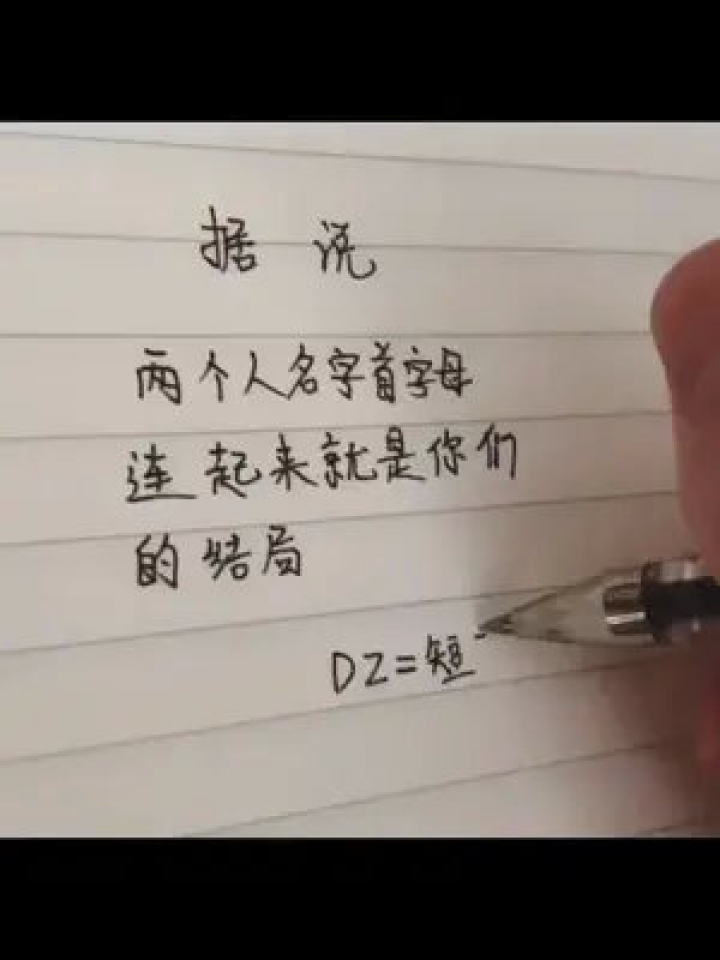 据说
两个人名字首字母
连起来就是你们
的结局
DZ=短